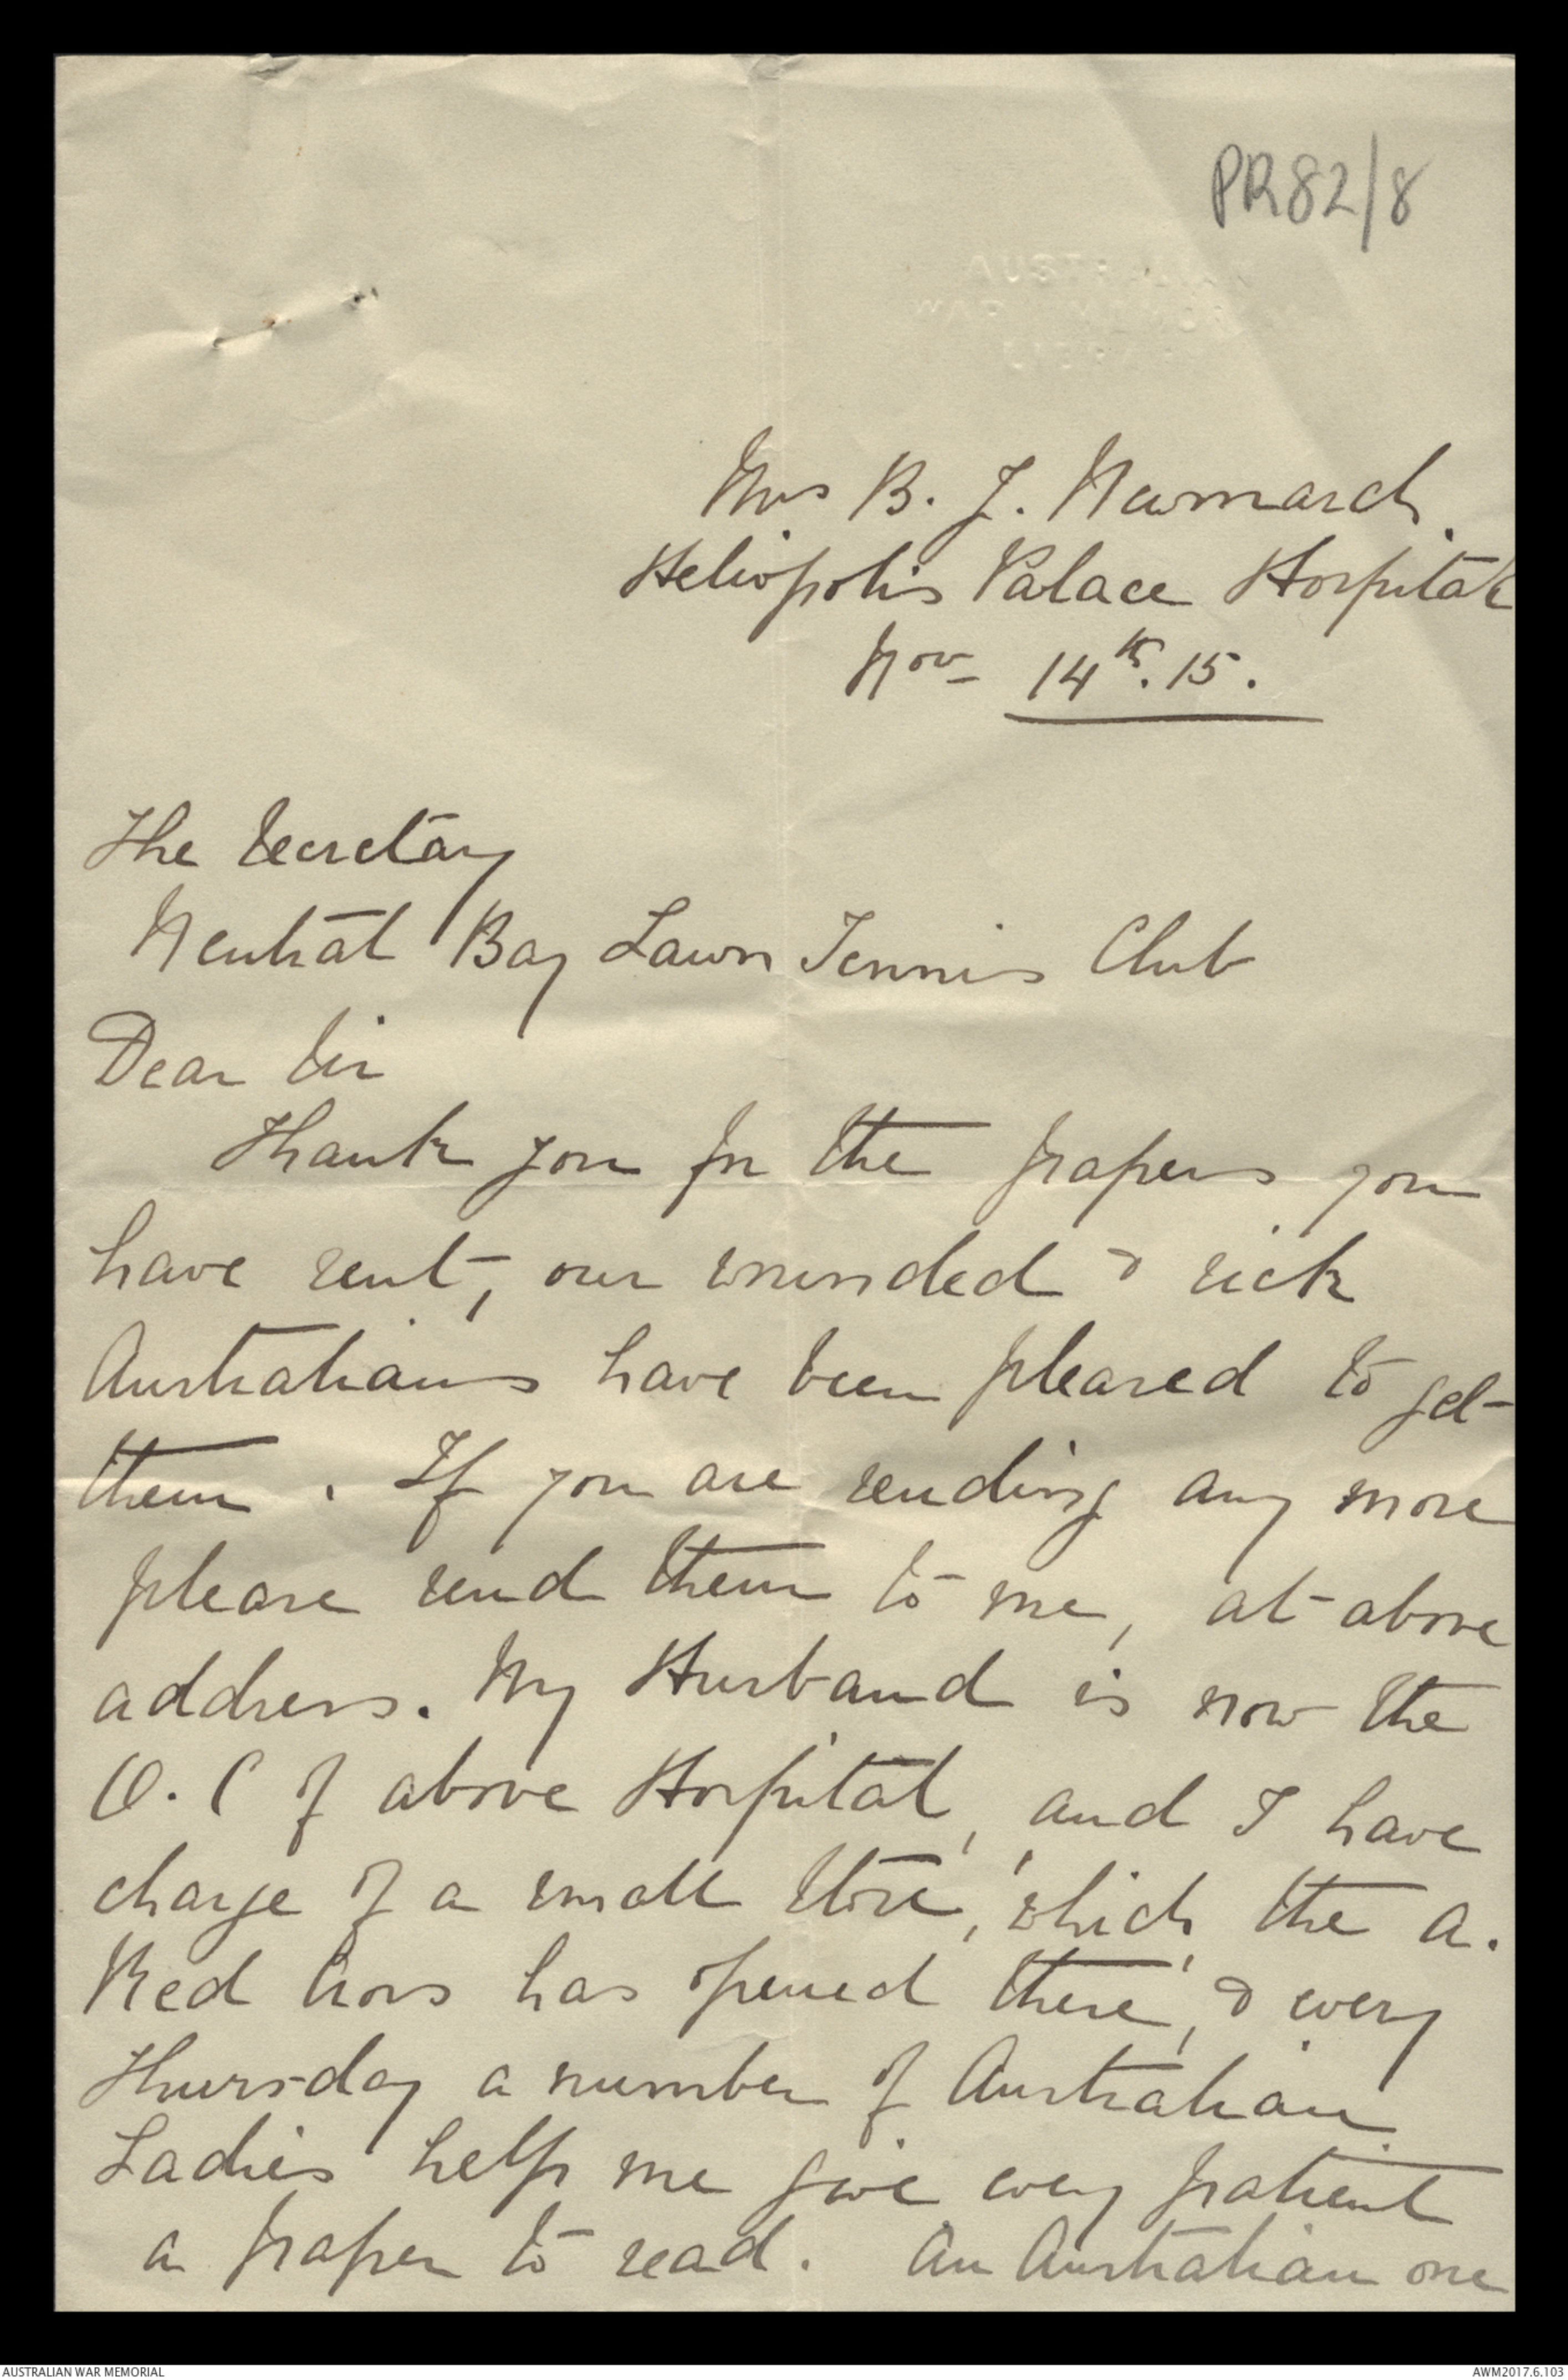 PR82/8
AUSTRALIAN
WAR MEMORIAL
Mrs B. J. Newmarch.
Heliopolis Palace Hospital
Nov 14th. 15.
The Secretary
Neutral Bay Lawn Tennis Club
Dear Sir
Thank you for the papers you
have sent, our wounded & sick
Australians have been pleased to get
them. If you are sending any more
please send them to me, at above
address. My Husband is now the
O.C of above Hospital, and I have
charge of a small store, which the A.
Red Cross has opened there, & every
Thursday a number of Australian
Ladies help me give every patient
a paper to read. An Australian one
AUSTRALIAN WAR MEMORIAL
AWM2017.6.103